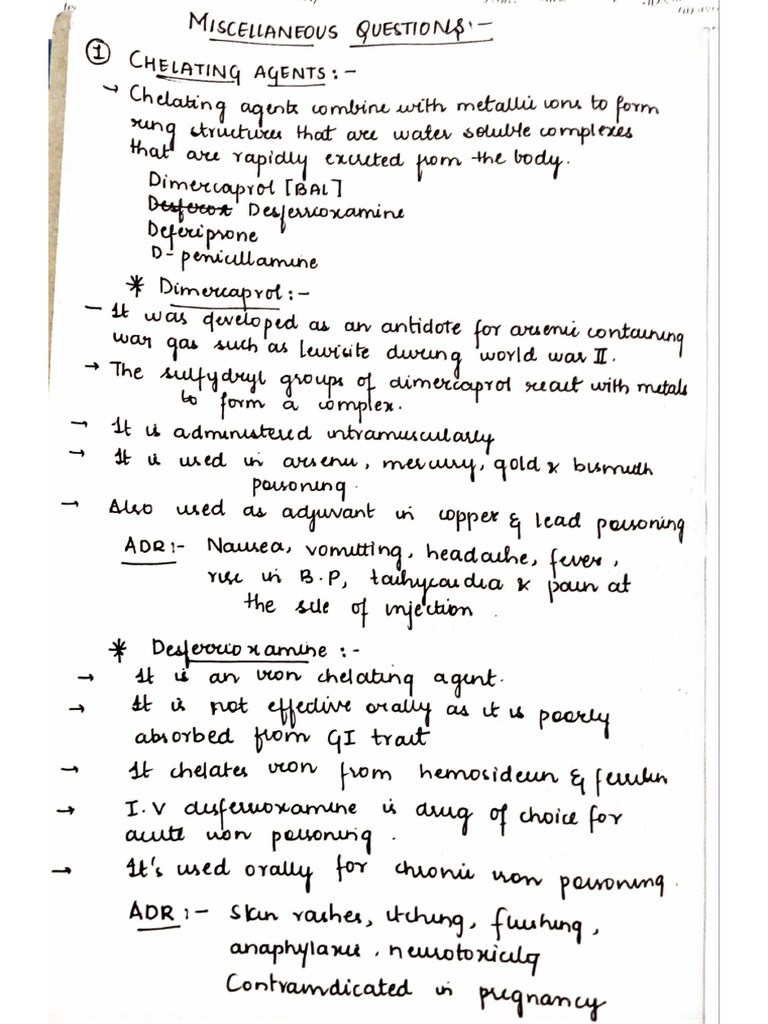 MISCELLANEOUS QUESTIONS:-
① CHELATING AGENTS:-
→ Chelating agents combine with metallic ions to form
ring structures that are water soluble complexes
that are rapidly excreted from the body.
Dimercaprol [BAL]
Desferox Desferrioxamine
Deferiprone
D-penicillamine
* Dimercaprol:-
- It was developed as an antidote for arsenic containing
war gas such as lewisite during world war II.
→ The sulfydryl groups of dimercaprol react with metals
to form a complex.
→ It is administered intramuscularly
→ It is used in arsenic, mercury, gold & bismuth
poisoning.
→ Also used as adjuvant in copper & lead poisoning
ADR:- Nausea, vomitting, headache, fever,
rise in B.P, tachycardia & pain at
the site of injection.
* Desferrioxamine:-
→ It is an iron chelating agent.
→ It is not effective orally as it is poorly
absorbed from GI tract
→ It chelates iron from hemosiderin & ferritin
→ I.V desferrioxamine is drug of choice for
acute iron poisoning.
→ It's used orally for chronic iron poisoning.
ADR:- Skin rashes, itching, flushing,
anaphylaxis, neurotoxicity
Contraindicated in pregnancy